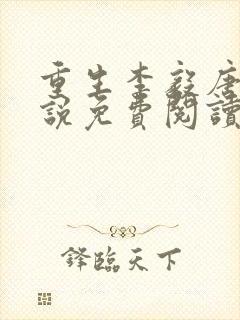 重生李毅唐
說免費閱讀
鋒臨天下